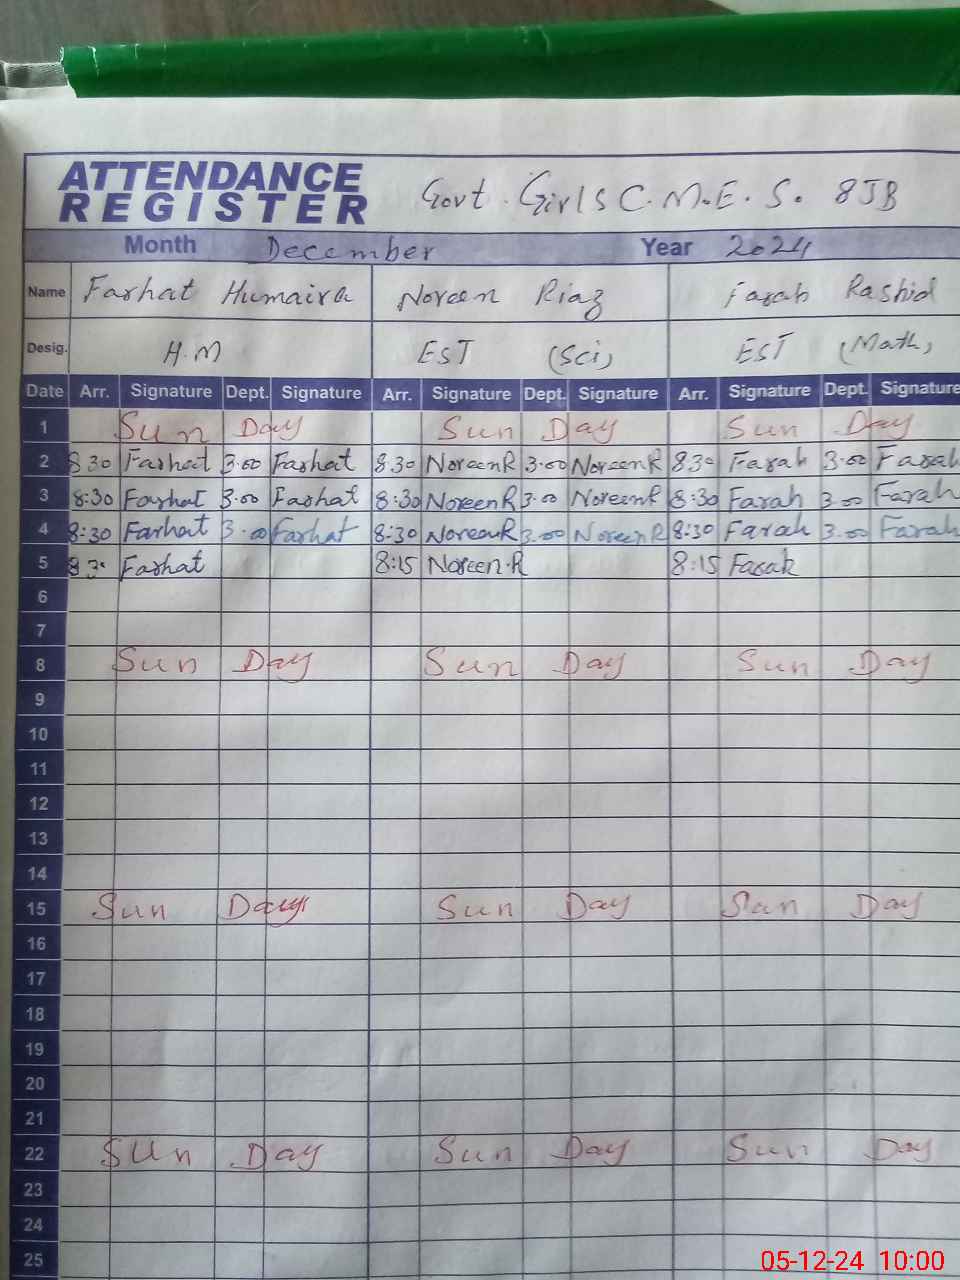 ATTENDANCE
REGISTER
Govt. Girls C.M.E.S. 8JB
Month December Year 2024
Name Farhat Humaira Noreen Riaz Farah Rashid
Desig. H.M EST (Sci) EST (Math)
Date Arr. Signature Dept. Signature Arr. Signature Dept. Signature Arr. Signature Dept. Signature
1 Sun Day Sun Day Sun Day
2 8 30 Farhat 3.00 Farhat 8.30 NoreenR 3.00 NoreenR 8.30 Farah 3.00 Farah
3 8:30 Farhat 3.00 Farhat 8:30 NoreenR 3.00 NoreenR 8:30 Farah 3.00 Farah
4 8:30 Farhat 3.00 Farhat 8:30 NoreenR 3.00 NoreenR 8:30 Farah 3.00 Farah
5 8 30 Farhat 8:15 Noreen.R 8:15 Farah
6
7
8 Sun Day Sun Day Sun Day
9
10
11
12
13
14
15 Sun Day Sun Day Sun Day
16
17
18
19
20
21
22 Sun Day Sun Day Sun Day
23
24
25
05-12-24 10:00